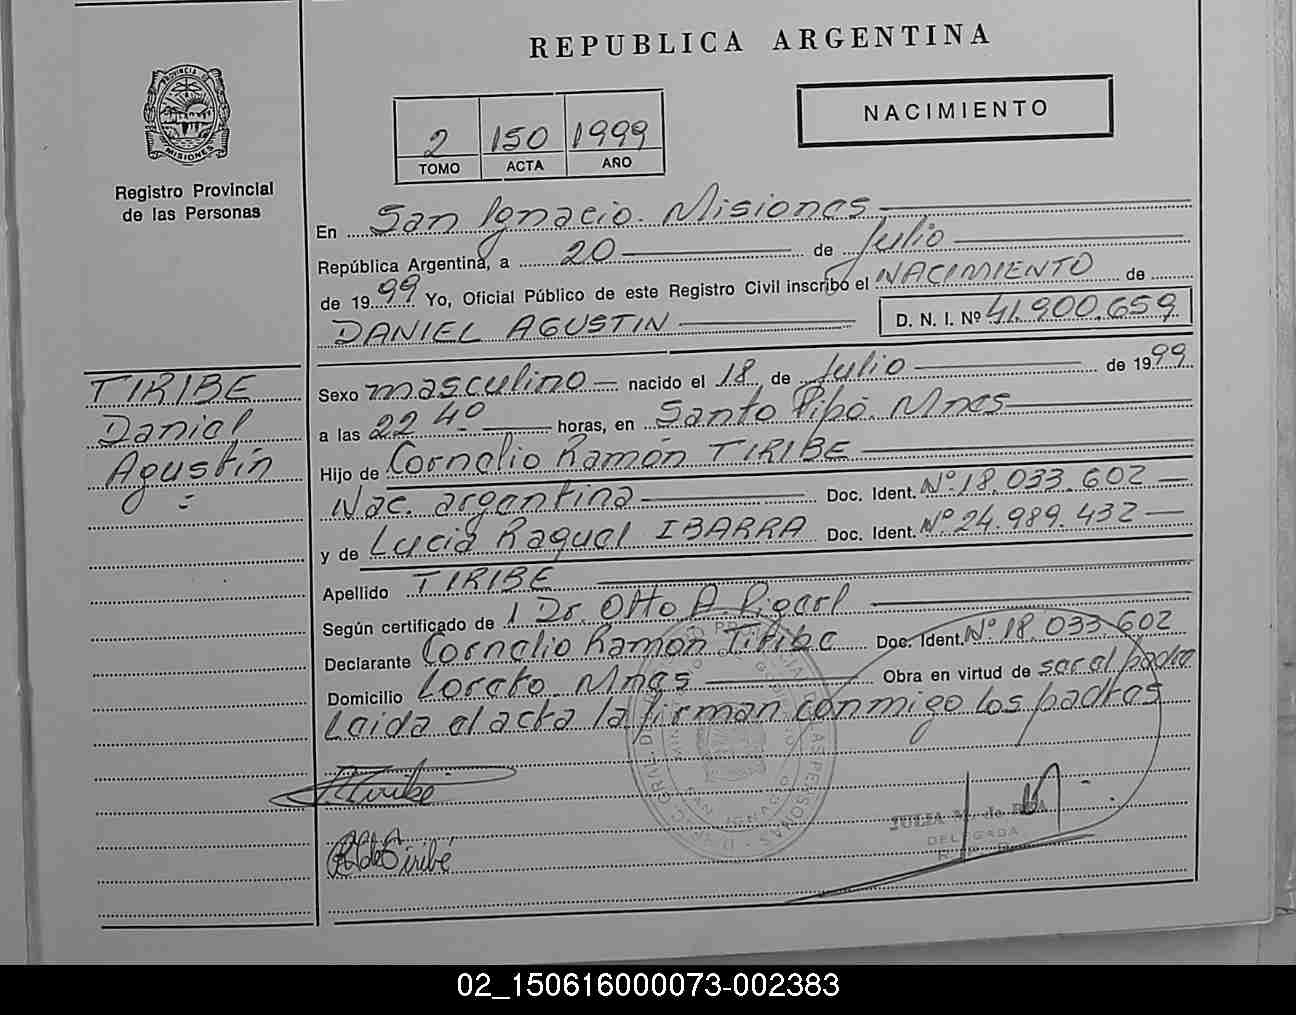 REPUBLICA ARGENTINA
PROVINCIA DE
MISIONES
Registro Provincial
de las Personas
2 150 1999
TOMO ACTA AÑO
NACIMIENTO
En San Ignacio. Misiones
República Argentina, a 20 de Julio
de 1999 Yo, Oficial Público de este Registro Civil inscribo el NACIMIENTO de
DANIEL AGUSTIN D. N. I. Nº 41.900.659
TIRIBE
Daniel
Agustín
Sexo masculino nacido el 18 de Julio de 1999
a las 22 40 horas, en Santo Pipó. Mnes
Hijo de Cornelio Ramón TIRIBE
Nac. argentina Doc. Ident. Nº 18.033.602
y de Lucia Raquel IBARRA Doc. Ident. Nº 24.989.432
Apellido TIRIBE
Según certificado de 1 Dr. Otto A.
Declarante Cornelio Ramón Tiribe Doc. Ident. Nº 18.033.602
Domicilio Loreto. Mnes Obra en virtud de ser el padre
Leida el acta la firman conmigo los padres
Tiribe
de Tiribé
SAN IGNACIO
JULIA M. de
DELEGADA
02_150616000073-002383